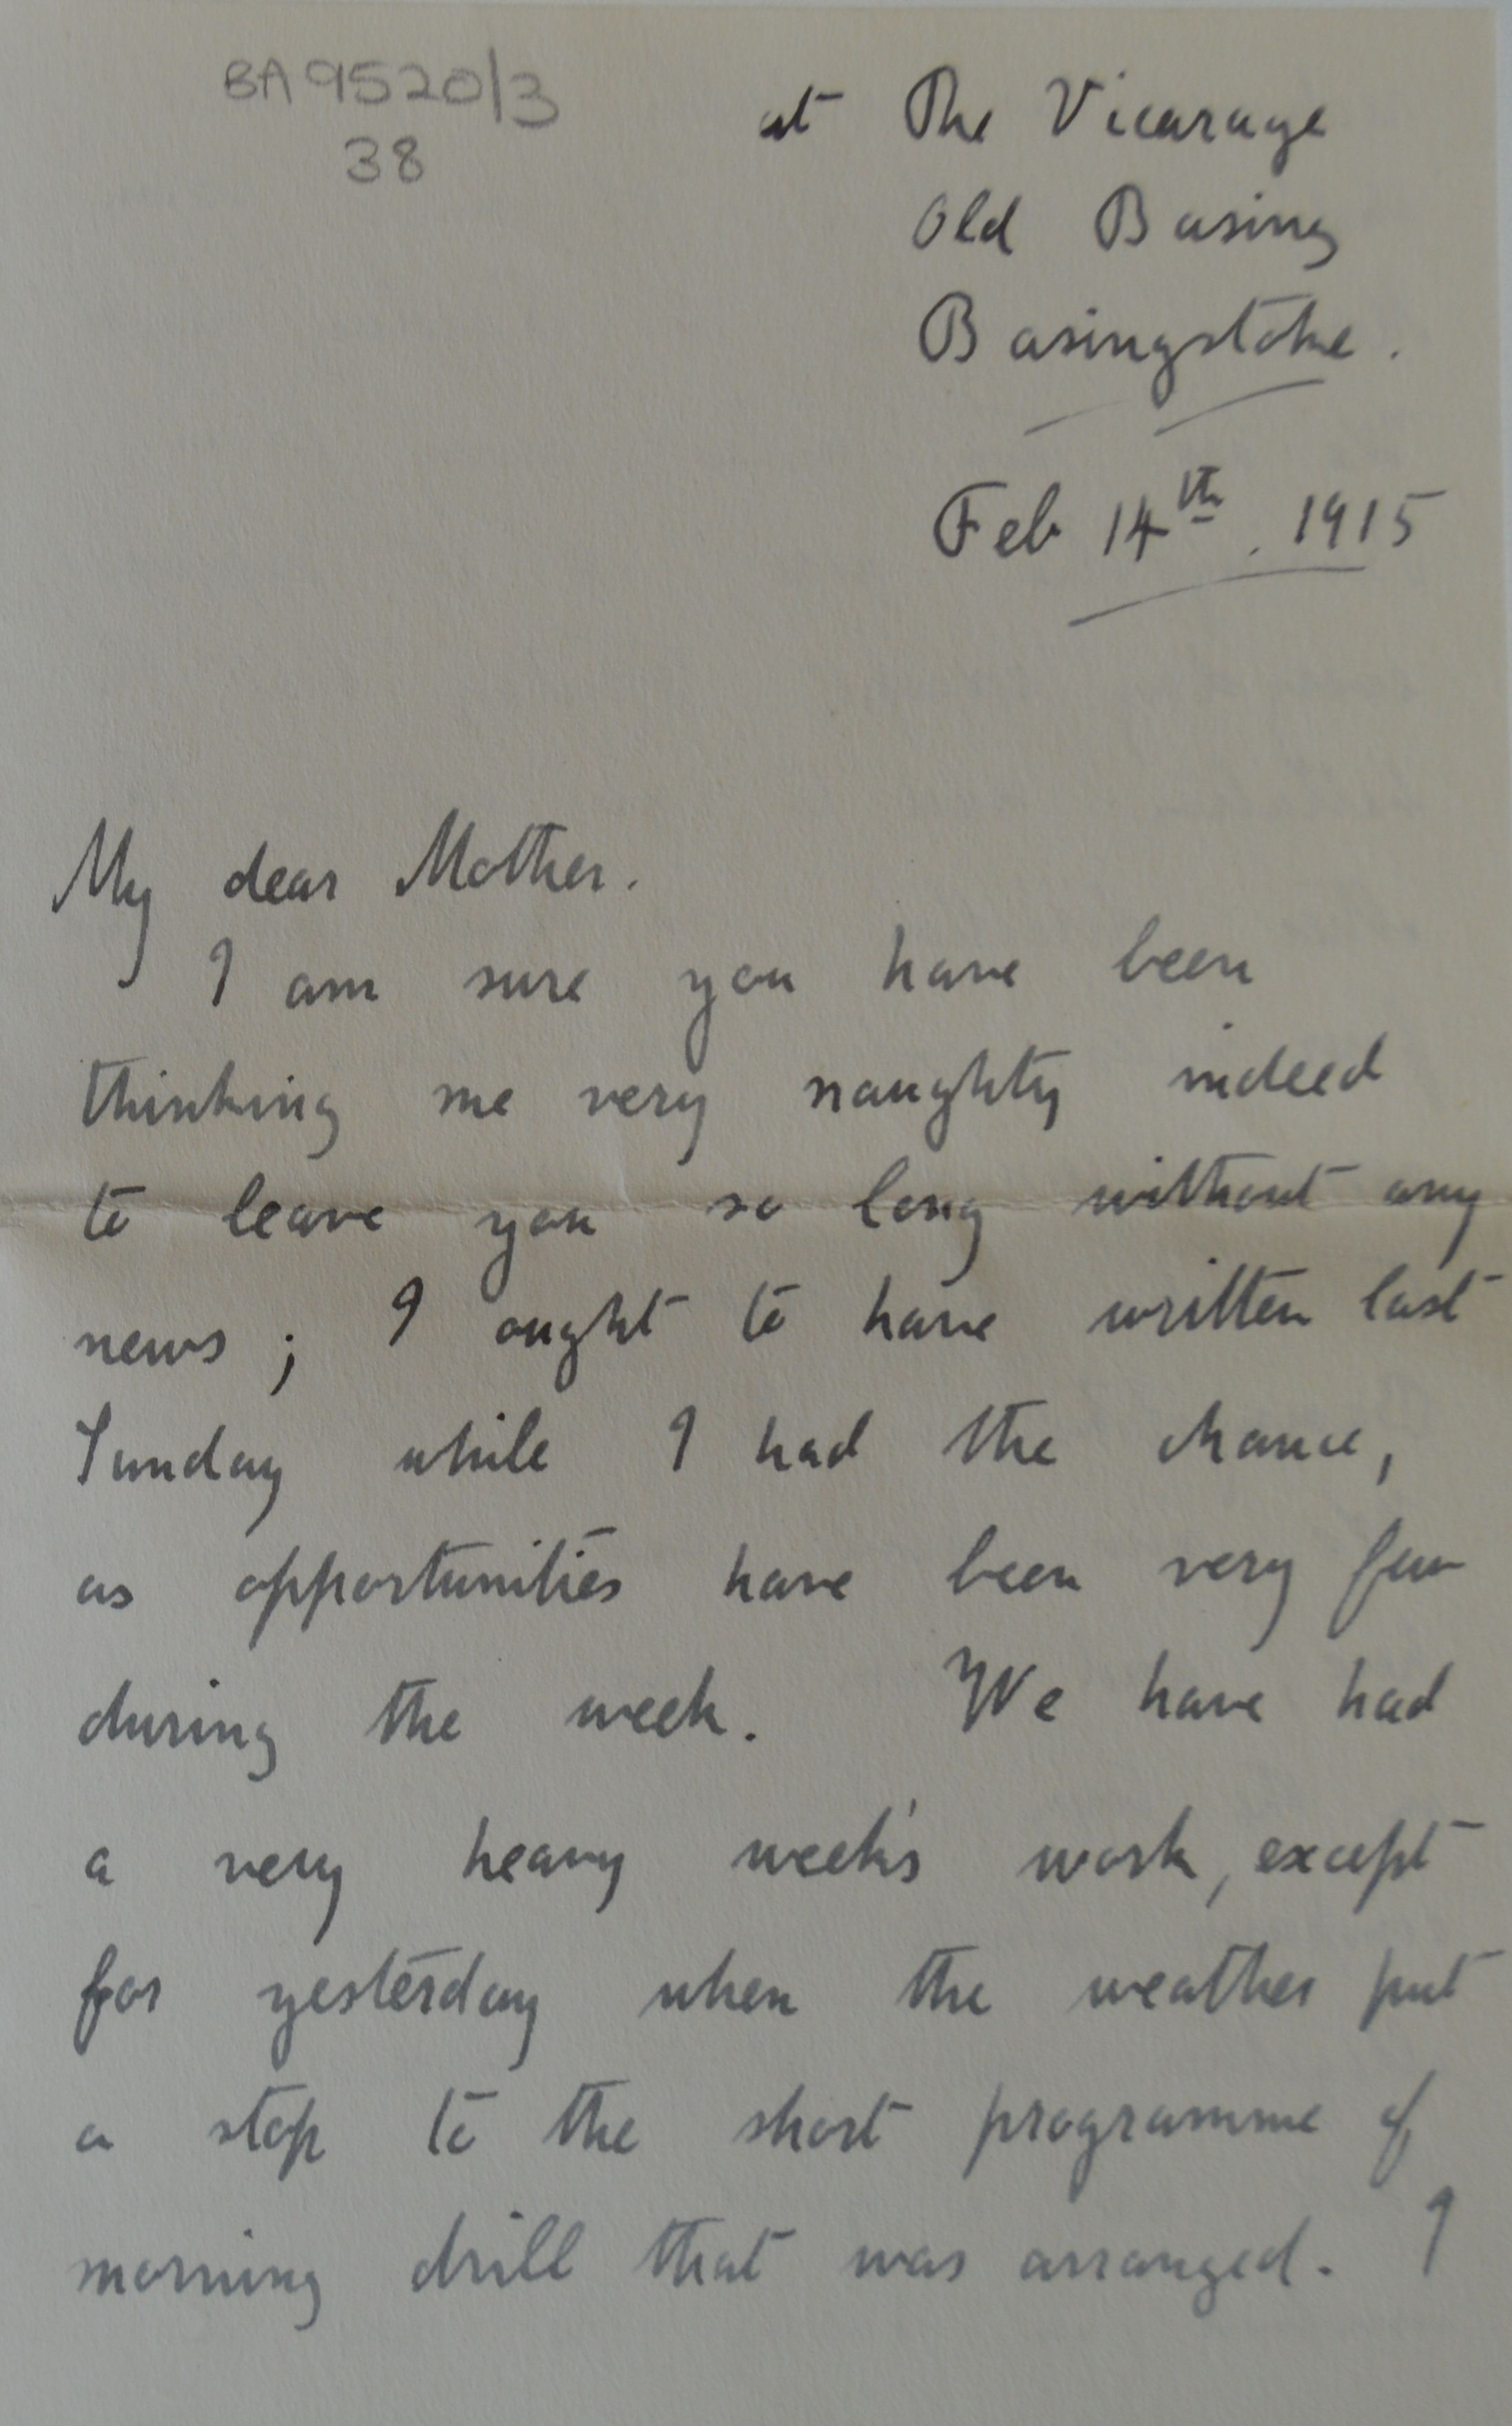 BA 9520/3
38
at The Vicarage
Old Basing
Basingstoke.
Feb 14th. 1915
My dear Mother.
I am sure you have been
thinking me very naughty indeed
to leave you so long without any
news ; I ought to have written last
Sunday while I had the chance,
as opportunities have been very few
during the week. We have had
a very heavy week's work, except
for yesterday when the weather put
a stop to the short programme of
morning drill that was arranged. I